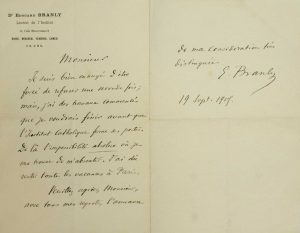 Dr EDOUARD BRANLY
Lauréat de l'Institut
PARIS
Monsieur
Je suis bien ennuyé d'être
forcé de refuser une seconde fois,
mais, j'ai des travaux commencés
que je voudrais finir avant que
l'Institut Catholique ferme ses portes.
De là l'impossibilité absolue où je
me trouve de m'absenter. J'ai dû
rester toutes les vacances à Paris.
Veuillez agréer, Monsieur,
avec tous mes regrets, l'assurance
de ma considération très
distinguée
E Branly
19 Sept. 1905